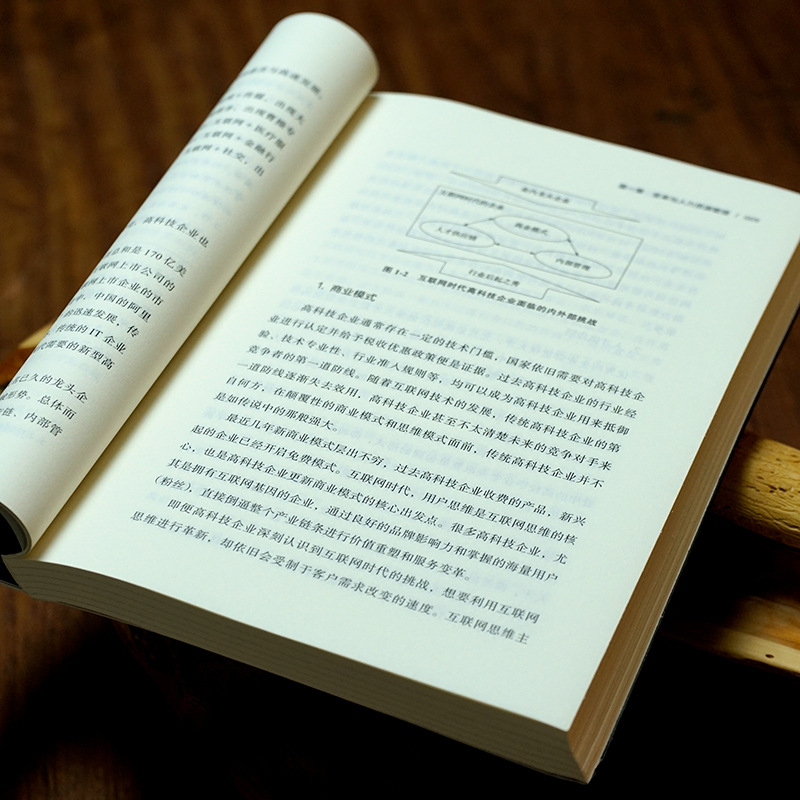 高科技企业也
总和是 170 亿美
联网上市公司的
联网上市企业的市
中，中国的阿里
的迅速发展，传
传统的 IT 企业
需要的新型高
已久的龙头企
形势。总体而
链、内部管
互联网时代的企业
商业模式
人才供应链
内部管理
行业后起之秀
图 1-2 互联网时代高科技企业面临的内外部挑战
1. 商业模式
高科技企业通常存在一定的技术门槛，国家依旧需要对高科技企
业进行认定并给予税收优惠政策便是证据。过去高科技企业的行业经
验、技术专业性、行业准入规则等，均可以成为高科技企业用来抵御
竞争者的第一道防线。随着互联网技术的发展，传统高科技企业的第
一道防线逐渐失去效用，高科技企业甚至不太清楚未来的竞争对手来
自何方，在颠覆性的商业模式和思维模式面前，传统高科技企业并不
是如传说中的那般强大。
最近几年新商业模式层出不穷，过去高科技企业收费的产品，新兴
起的企业已经开启免费模式。互联网时代，用户思维是互联网思维的核
心，也是高科技企业更新商业模式的核心出发点。很多高科技企业，尤
其是拥有互联网基因的企业，通过良好的品牌影响力和掌握的海量用户
（粉丝），直接倒逼整个产业链条进行价值重塑和服务变革。
即便高科技企业深刻认识到互联网时代的挑战，想要利用互联网
思维进行革新，却依旧会受制于客户需求改变的速度。互联网思维主